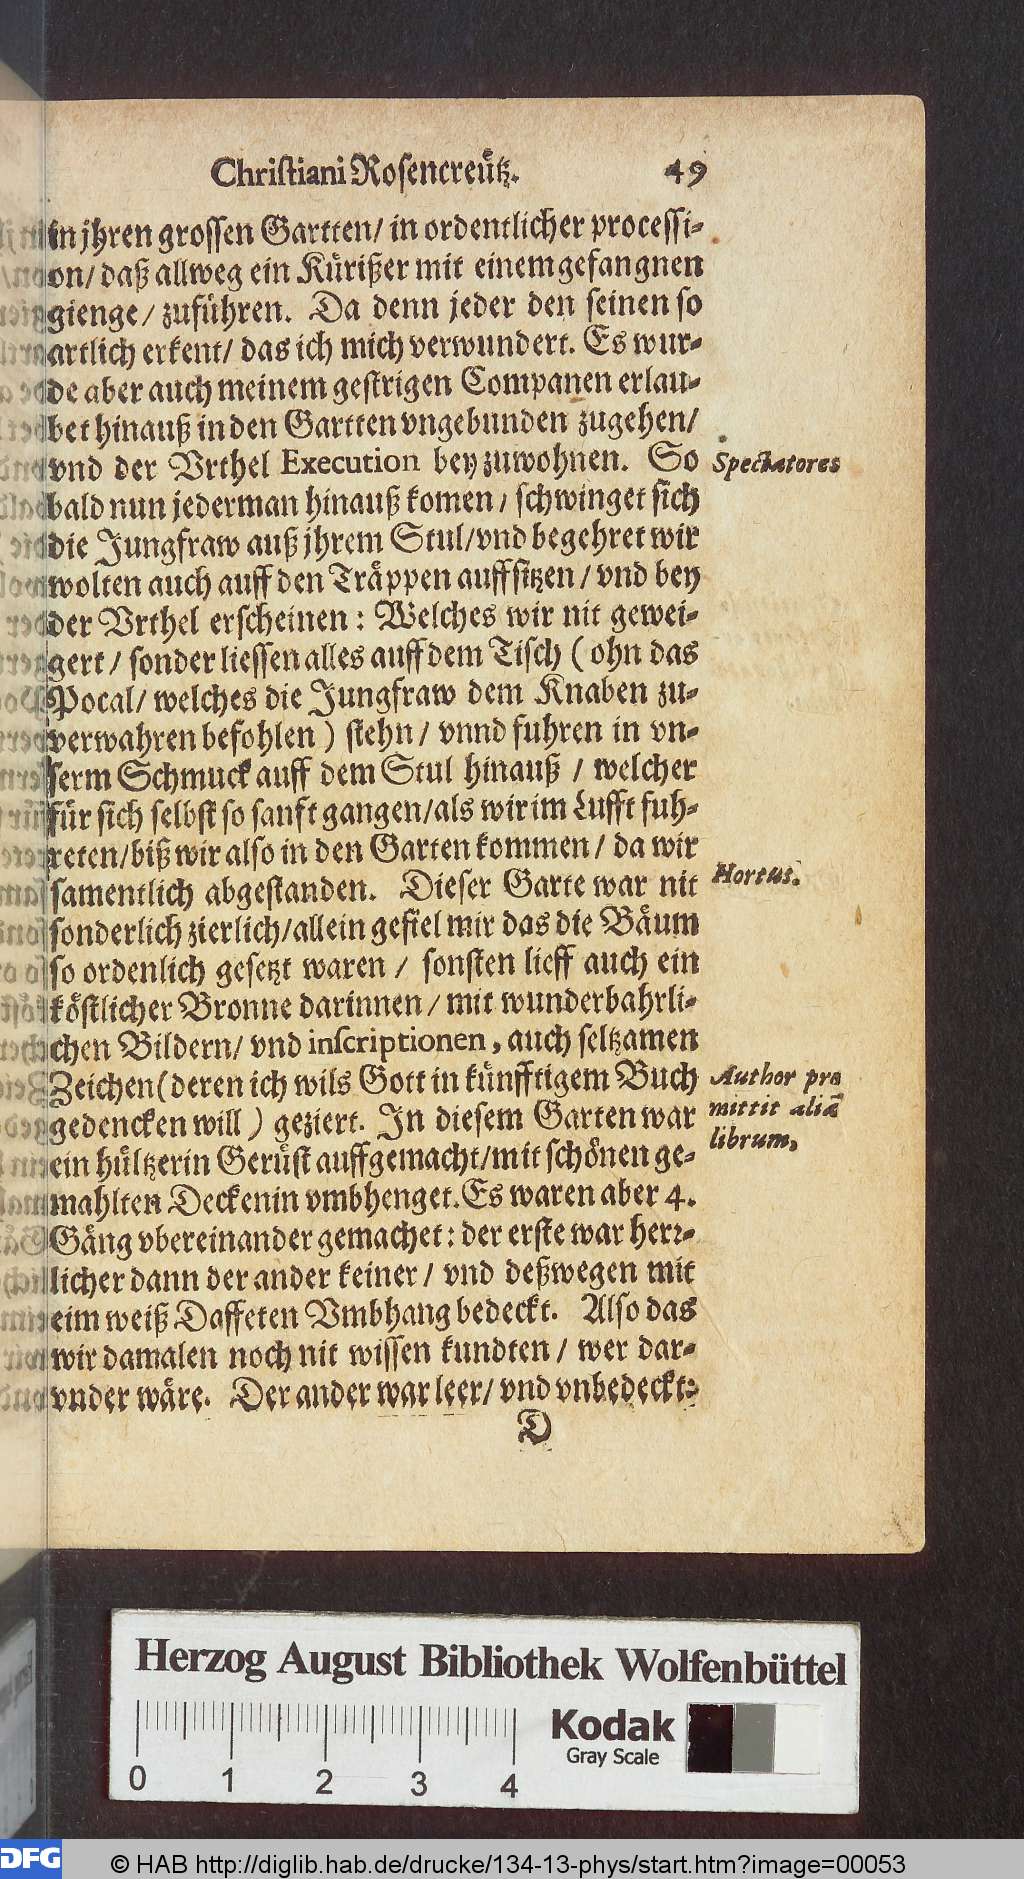 Christiani Rosencreütz. 49
in jhren grossen Gartten/ in ordentlicher processi-
on/ daß allweg ein Kürißer mit einem gefangnen
gienge/ zuführen. Da denn jeder den seinen so
artlich erkent/ das ich mich verwundert. Es wur-
de aber auch meinem gestrigen Companen erlau-
bet hinauß in den Gartten vngebunden zugehen/
vnd der Vrthel Execution bey zuwohnen. So
Spectatores
bald nun jederman hinauß komen/ schwinget sich
die Jungfraw auß jhrem Stul/vnd begehret wir
wolten auch auff den Träppen auffsitzen/ vnd bey
der Vrthel erscheinen: Welches wir nit gewei-
gert/ sonder liessen alles auff dem Tisch (ohn das
Pocal/ welches die Jungfraw dem Knaben zu-
verwahren befohlen) stehn/ vnnd fuhren in vn-
serm Schmuck auff dem Stul hinauß/ welcher
für sich selbst so sanft gangen/als wir im Lufft fuh-
reten/biß wir also in den Garten kommen/ da wir
Hortus.
samentlich abgestanden. Dieser Garte war nit
sonderlich zierlich/allein gefiel mir das die Bäum
so ordenlich gesetzt waren/ sonsten lieff auch ein
köstlicher Bronne darinnen/ mit wunderbahrli-
chen Bildern/ vnd inscriptionen, auch seltzamen
Zeichen (deren ich wils Gott in künfftigem Buch
Author pro
mittit aliũ
librum,
gedencken will) geziert. In diesem Garten war
ein hültzerin Gerüst auffgemacht/mit schönen ge-
mahlten Deckenin vmbhenget. Es waren aber 4.
Gäng vbereinander gemachet: der erste war herr-
licher dann der ander keiner/ vnd deßwegen mit
eim weiß Daffeten Vmbhang bedeckt. Also das
wir damalen noch nit wissen kundten/ wer dar-
vnder wäre. Der ander war leer/ vnd vnbedeckt:
D
Herzog August Bibliothek Wolfenbüttel
Kodak
Gray Scale
0 1 2 3 4
DFG
© HAB http://diglib.hab.de/drucke/134-13-phys/start.htm?image=00053